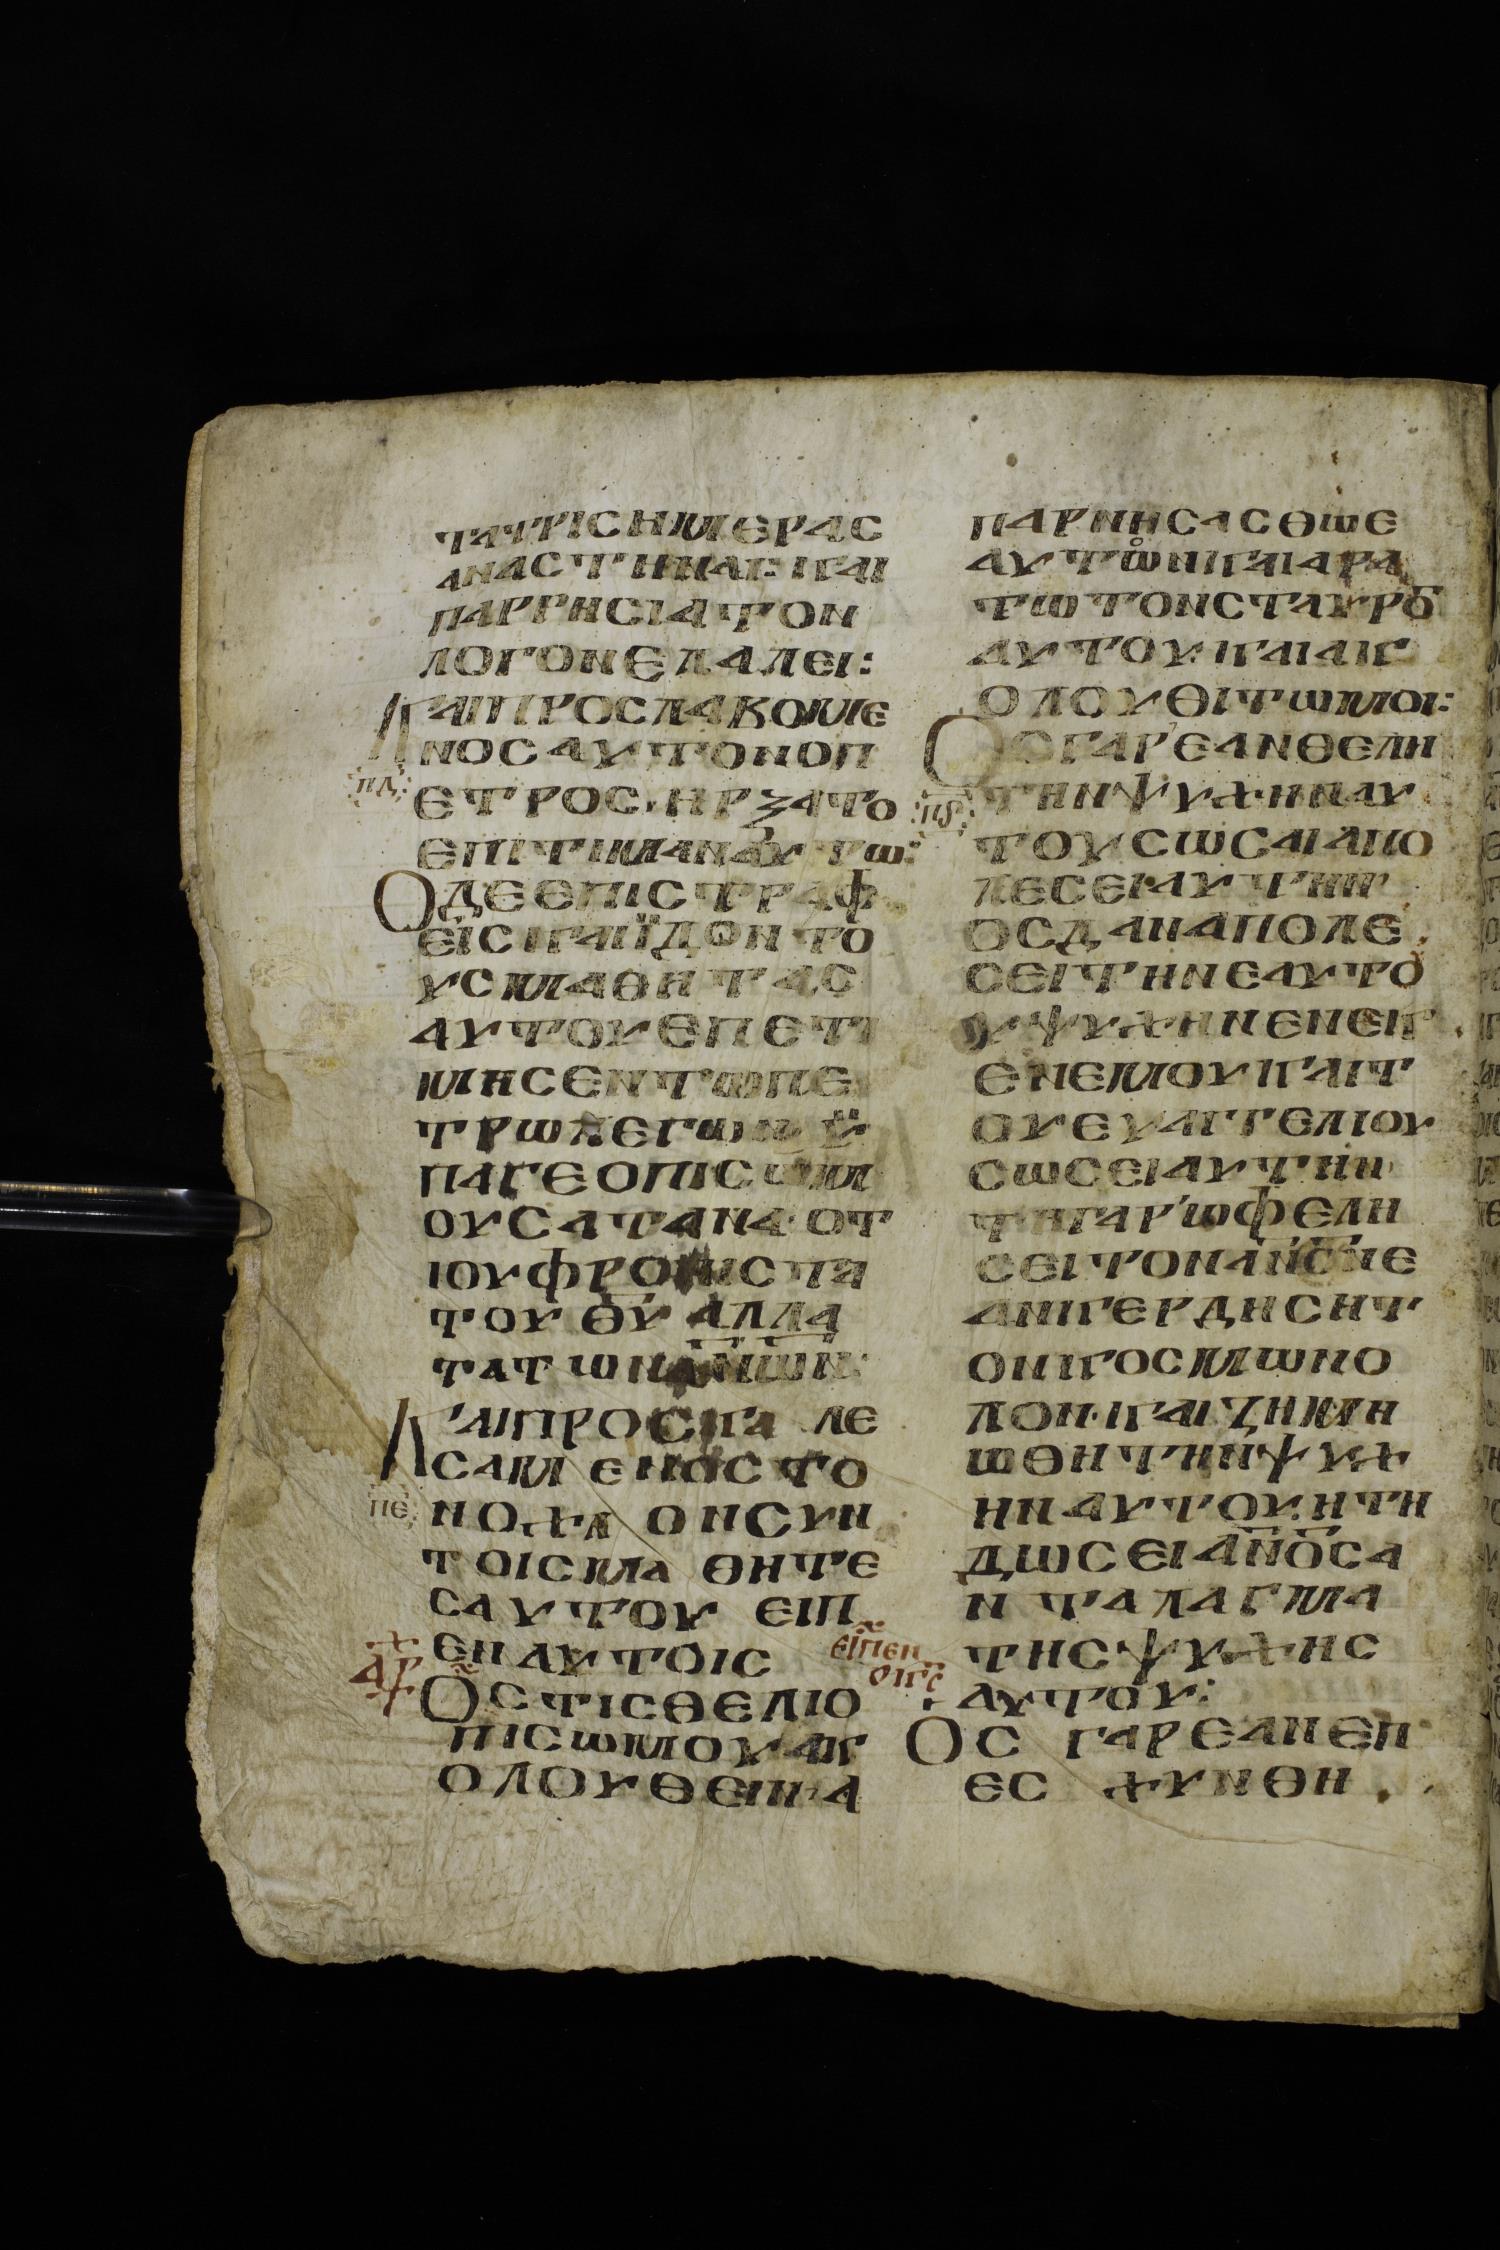 ΤΑΤΡΙСΗΜΕΡΑС
ΑΝΑСΤΗΝΑΙ: ΚΑΙ
ΠΑΡΡΗСΙΑΤΟΝ
ΛΟΓΟΝΕΛΑΛΕΙ:
ΚΑΙΠΡΟСΛΑΒΟΜΕ
ΝΟСΑΥΤΟΝΟΠ
:ΠΔ:
ΕΤΡΟС·ΗΡΞΑΤΟ
ΕΠΙΤΙΜΑΝΑΥΤΩ:
ΟΔΕΕΠΙСΤΡΑΦ
ΕΙСΚΑΙΪΔΟΝΤΟ
ΥСΜΑΘΗΤΑС
ΑΥΤΟΥΕΠΕΤΙ
ΜΗСΕΝΤΩΠΕ
ΤΡΩΛΕΓΩΝΫ
ΠΑΓΕΟΠΙСΩΜ
ΟΥСΑΤΑΝΑ·ΟΤ
ΙΟΥΦΡΟΝΙСΤΑ
ΤΟΥΘ̅Υ̅ΑΛΛΑ
ΤΑΤΩΝΑ̅Ν̅ΩΝ:
ΚΑΙΠΡΟСΚΑΛΕ
СΑΜΕΝΟСΤΟ
ΠΕ
ΝΟΧΛΟΝСΥΝ
ΤΟΙСΜΑΘΗΤΕ
СΑΥΤΟΥΕΙΠ
ΕΝΑΥΤΟΙС
ΑΡΧ
ΟСΤΙСΘΕΛΙΟ
ΠΙСΩΜΟΥΑΚ
ΟΛΟΥΘΕΙΝ·Α
ΠΑΡΝΗСΑСΘΩΕ
ΑΥΤΩΝΚΑΙΑΡΑ
ΤΩΤΟΝСΤΑΥΡΟ̅
ΑΥΤΟΥ·ΚΑΙΑΚ
ΟΛΟΥΘΙΤΩΜΟΙ:
ΟСΓΑΡΕΑΝΘΕΛΗ
:ΠϚ:
ΤΗΝΨΥΧΗΝΑΥ
ΤΟΥСΩСΑΙΑΠΟ
ΛΕСΕΙΑΥΤΗΝ
ΟСΔΑΝΑΠΟΛΕ
СΕΙΤΗΝΕΑΥΤΟ
ΥΨΥΧΗΝΕΝΕΚ
ΕΝΕΜΟΥΚΑΙΤ
ΟΥΕΥΑΓΓΕΛΙΟΥ
СΩСΕΙΑΥΤΗΝ
ΤΗΓΑΡΩΦΕΛΗ
СΕΙΤΟΝΑ̅Ν̅С̅ΠΕ
ΑΝΚΕΡΔΗСΗΤ
ΟΝΚΟСΜΩΝΟ
ΛΟΝ·ΚΑΙΖΗΜΗ
ΩΘΗΤΗΝΨΥΧ
ΗΝΑΥΤΟΥ·ΗΤΗ
ΔΩСΕΙΑ̅Ν̅ΟСΑ
ΝΤΑΛΑΓΜΑ
ΕΙΠΕΝ
ΟΚ̅С̅
ΤΗСΨΥΧΗС
ΑΥΤΟΥ:
ΟСΓΑΡΕΑΝΕΠ
ΕСΧΥΝΘΗ